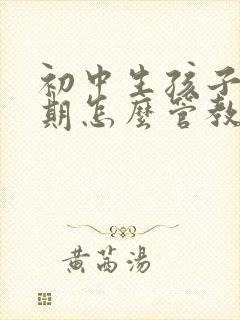 初中生孩子
期怎麼管教
黄芮湯